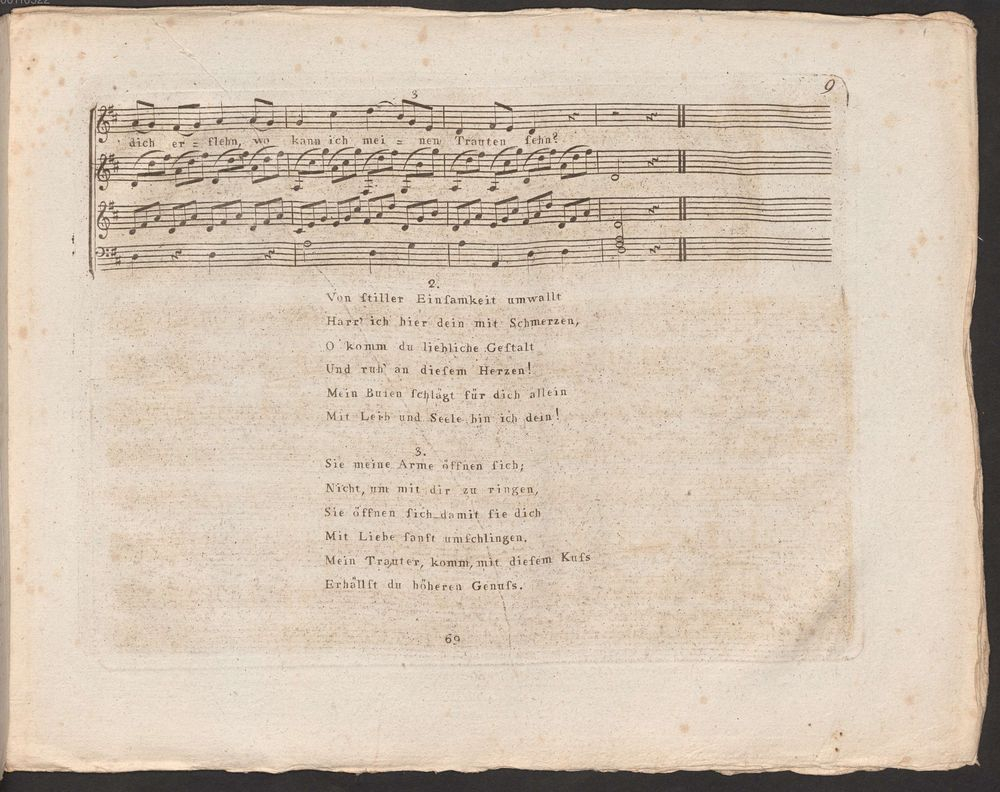 9
3
dich er = flehn, wo kann ich mei = nen Trauten ſehn?
2.
Von ſtiller Einſamkeit umwallt
Harr' ich hier dein mit Schmerzen,
O komm du liebliche Geſtalt
Und ruh' an dieſem Herzen!
Mein Buſen ſchlägt für dich allein
Mit Leib und Seele bin ich dein!
3.
Sie meine Arme öffnen ſich;
Nicht, um mit dir zu ringen,
Sie öffnen ſich damit ſie dich
Mit Liebe ſanft umſchlingen.
Mein Trauter, komm, mit dieſem Kuſs
Erhällſt du höheren Genuſs.
69